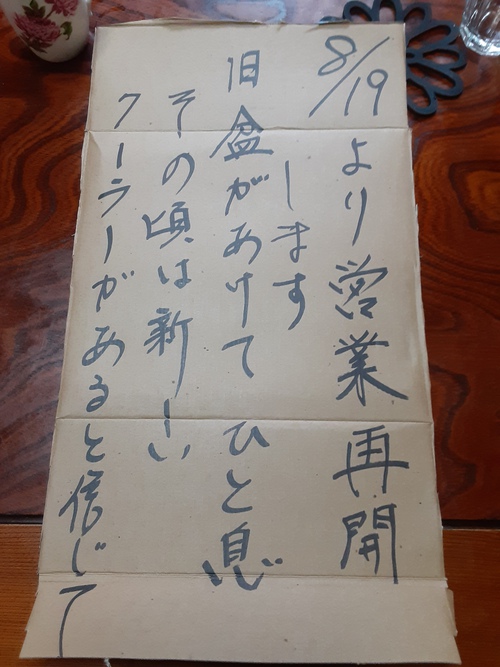 8/19より営業再開
します
旧盆があけてひと息
その頃は新しい
クーラーがあると信じて